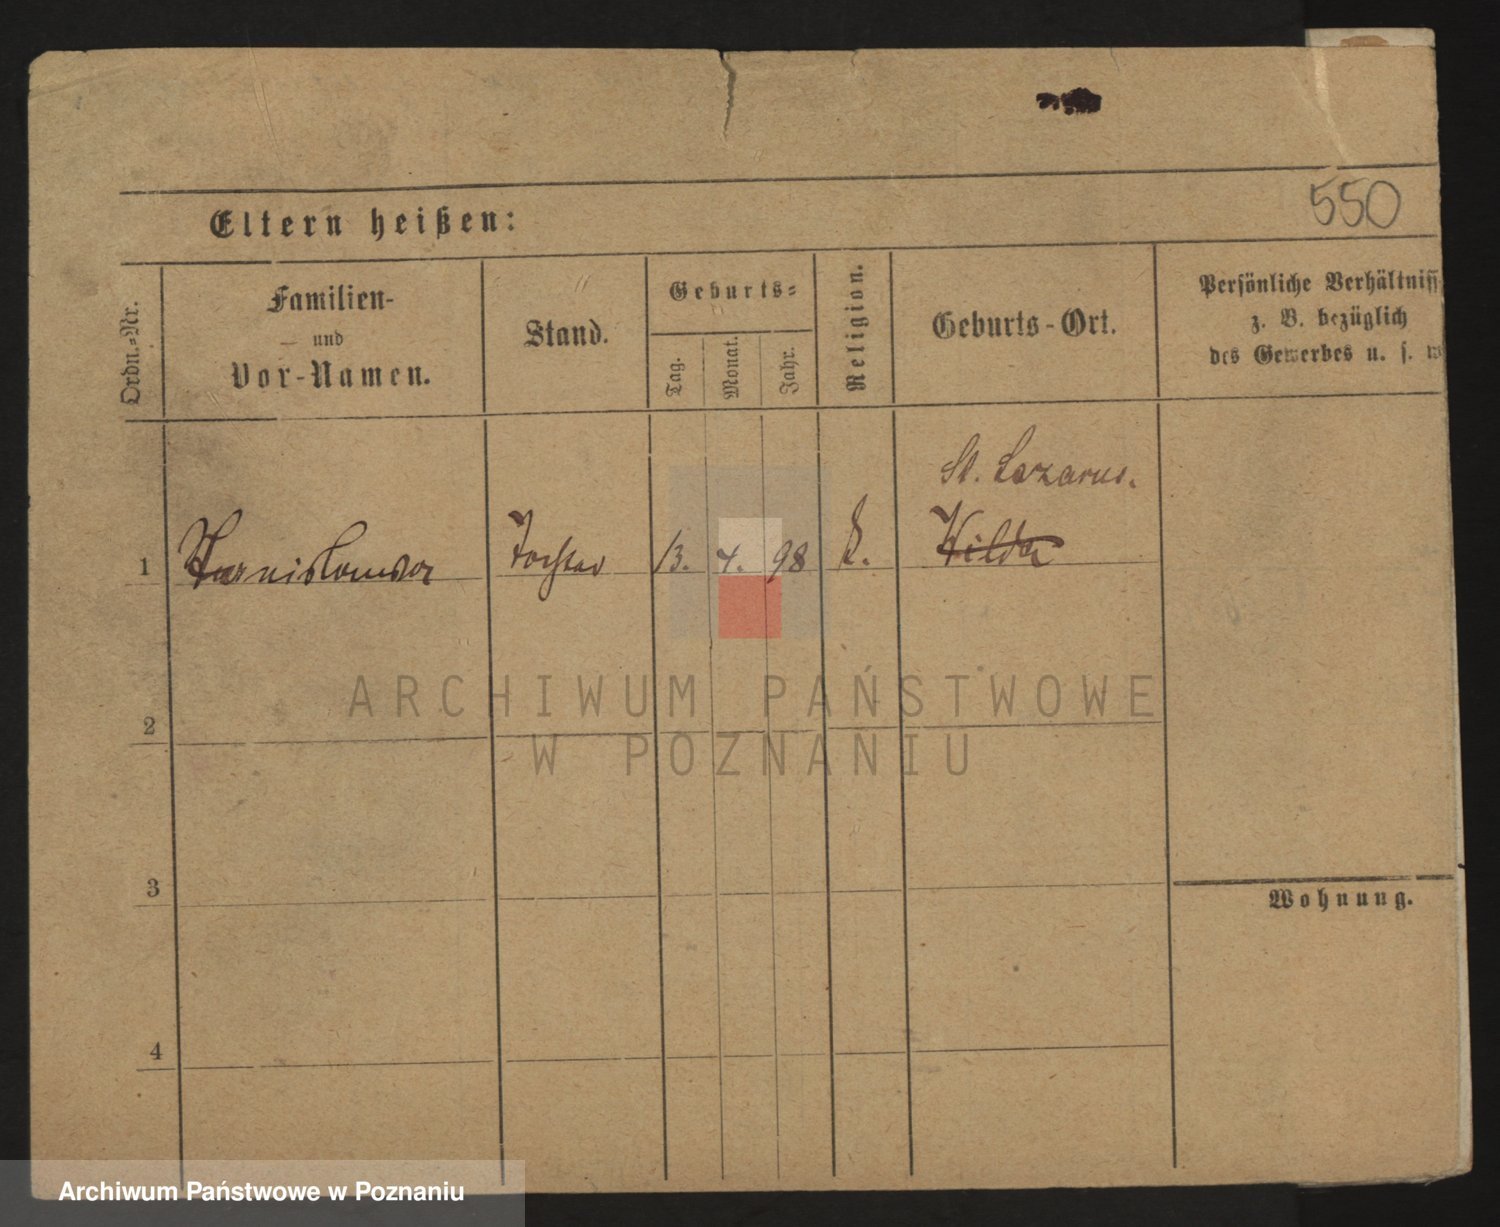 550
Eltern heißen:
Ordn.-Nr.
Familien-
und
Vor-Namen.
Stand.
Geburts-
Tag.
Monat.
Jahr.
Religion.
Geburts-Ort.
Persönliche Verhältniss
z. B. bezüglich
des Gewerbes u. s. w
St. Lazarus.
1
Tochter
13.
4.
98
k.
Wilda
2
3
4
Wohnung.
ARCHIWUM PAŃSTWOWE
W POZNANIU
Archiwum Państwowe w Poznaniu